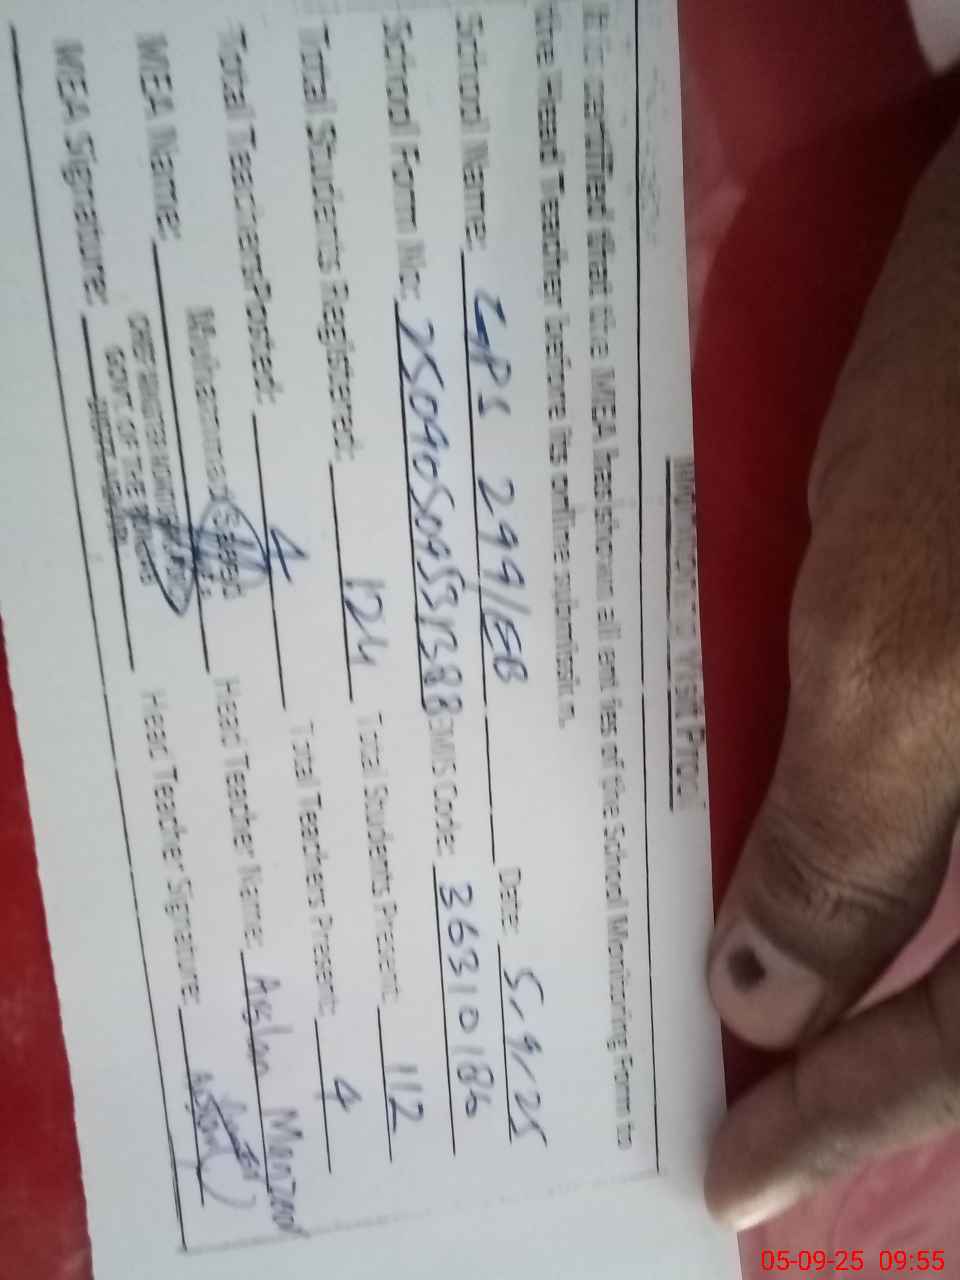 Monitoring Visit Proof
It is certified that the MEA has shown all entries of the School Monitoring Form to
the Head Teacher before its online submission.
School Name: GPS 299/EB Date: 5/9/25
School Form No: EMIS Code: 36310186
Total Students Registered: 124 Total Students Present: 112
Total Teachers Posted: 4 Total Teachers Present: 4
MEA Name: Muhammad Saeed Head Teacher Name: Arslan Manzoor
MEA Signature: Head Teacher Signature:
GOVT OF THE PUNJAB
05-09-25 09:55